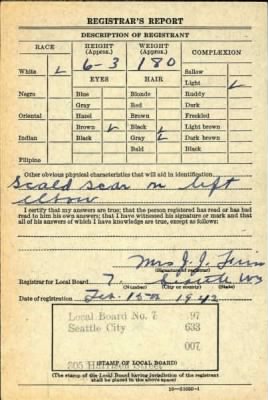 REGISTRAR'S REPORT
DESCRIPTION OF REGISTRANT
RACE HEIGHT (Approx.) WEIGHT (Approx.) COMPLEXION
6-3 180
White ✓ EYES HAIR Sallow
Light ✓
Negro Blue Blonde Ruddy
Gray Red Dark
Oriental Hazel Brown Freckled
Brown ✓ Black ✓ Light brown
Indian Black Gray ✓ Dark brown
Bald Black
Filipino
Other obvious physical characteristics that will aid in identification
Scald scar on left
elbow
I certify that my answers are true; that the person registered has read or has had
read to him his own answers; that I have witnessed his signature or mark and that
all of his answers of which I have knowledge are true, except as follows:
Mrs J. J.
(Signature of registrar)
Registrar for Local Board 7 Seattle Wn
(Number) (City or county) (State)
Date of registration Feb. 15 1942
Local Board No. 7 97
Seattle City 633
007
305 Harrison Street
(STAMP OF LOCAL BOARD)
(The stamp of the Local Board having jurisdiction of the registrant shall be
placed in the above space)